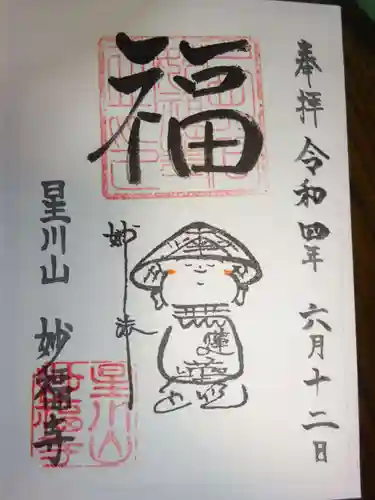 奉拝 令和四年 六月十二日
福
妙法
蓮
星川山 妙福寺
星川山
妙福寺